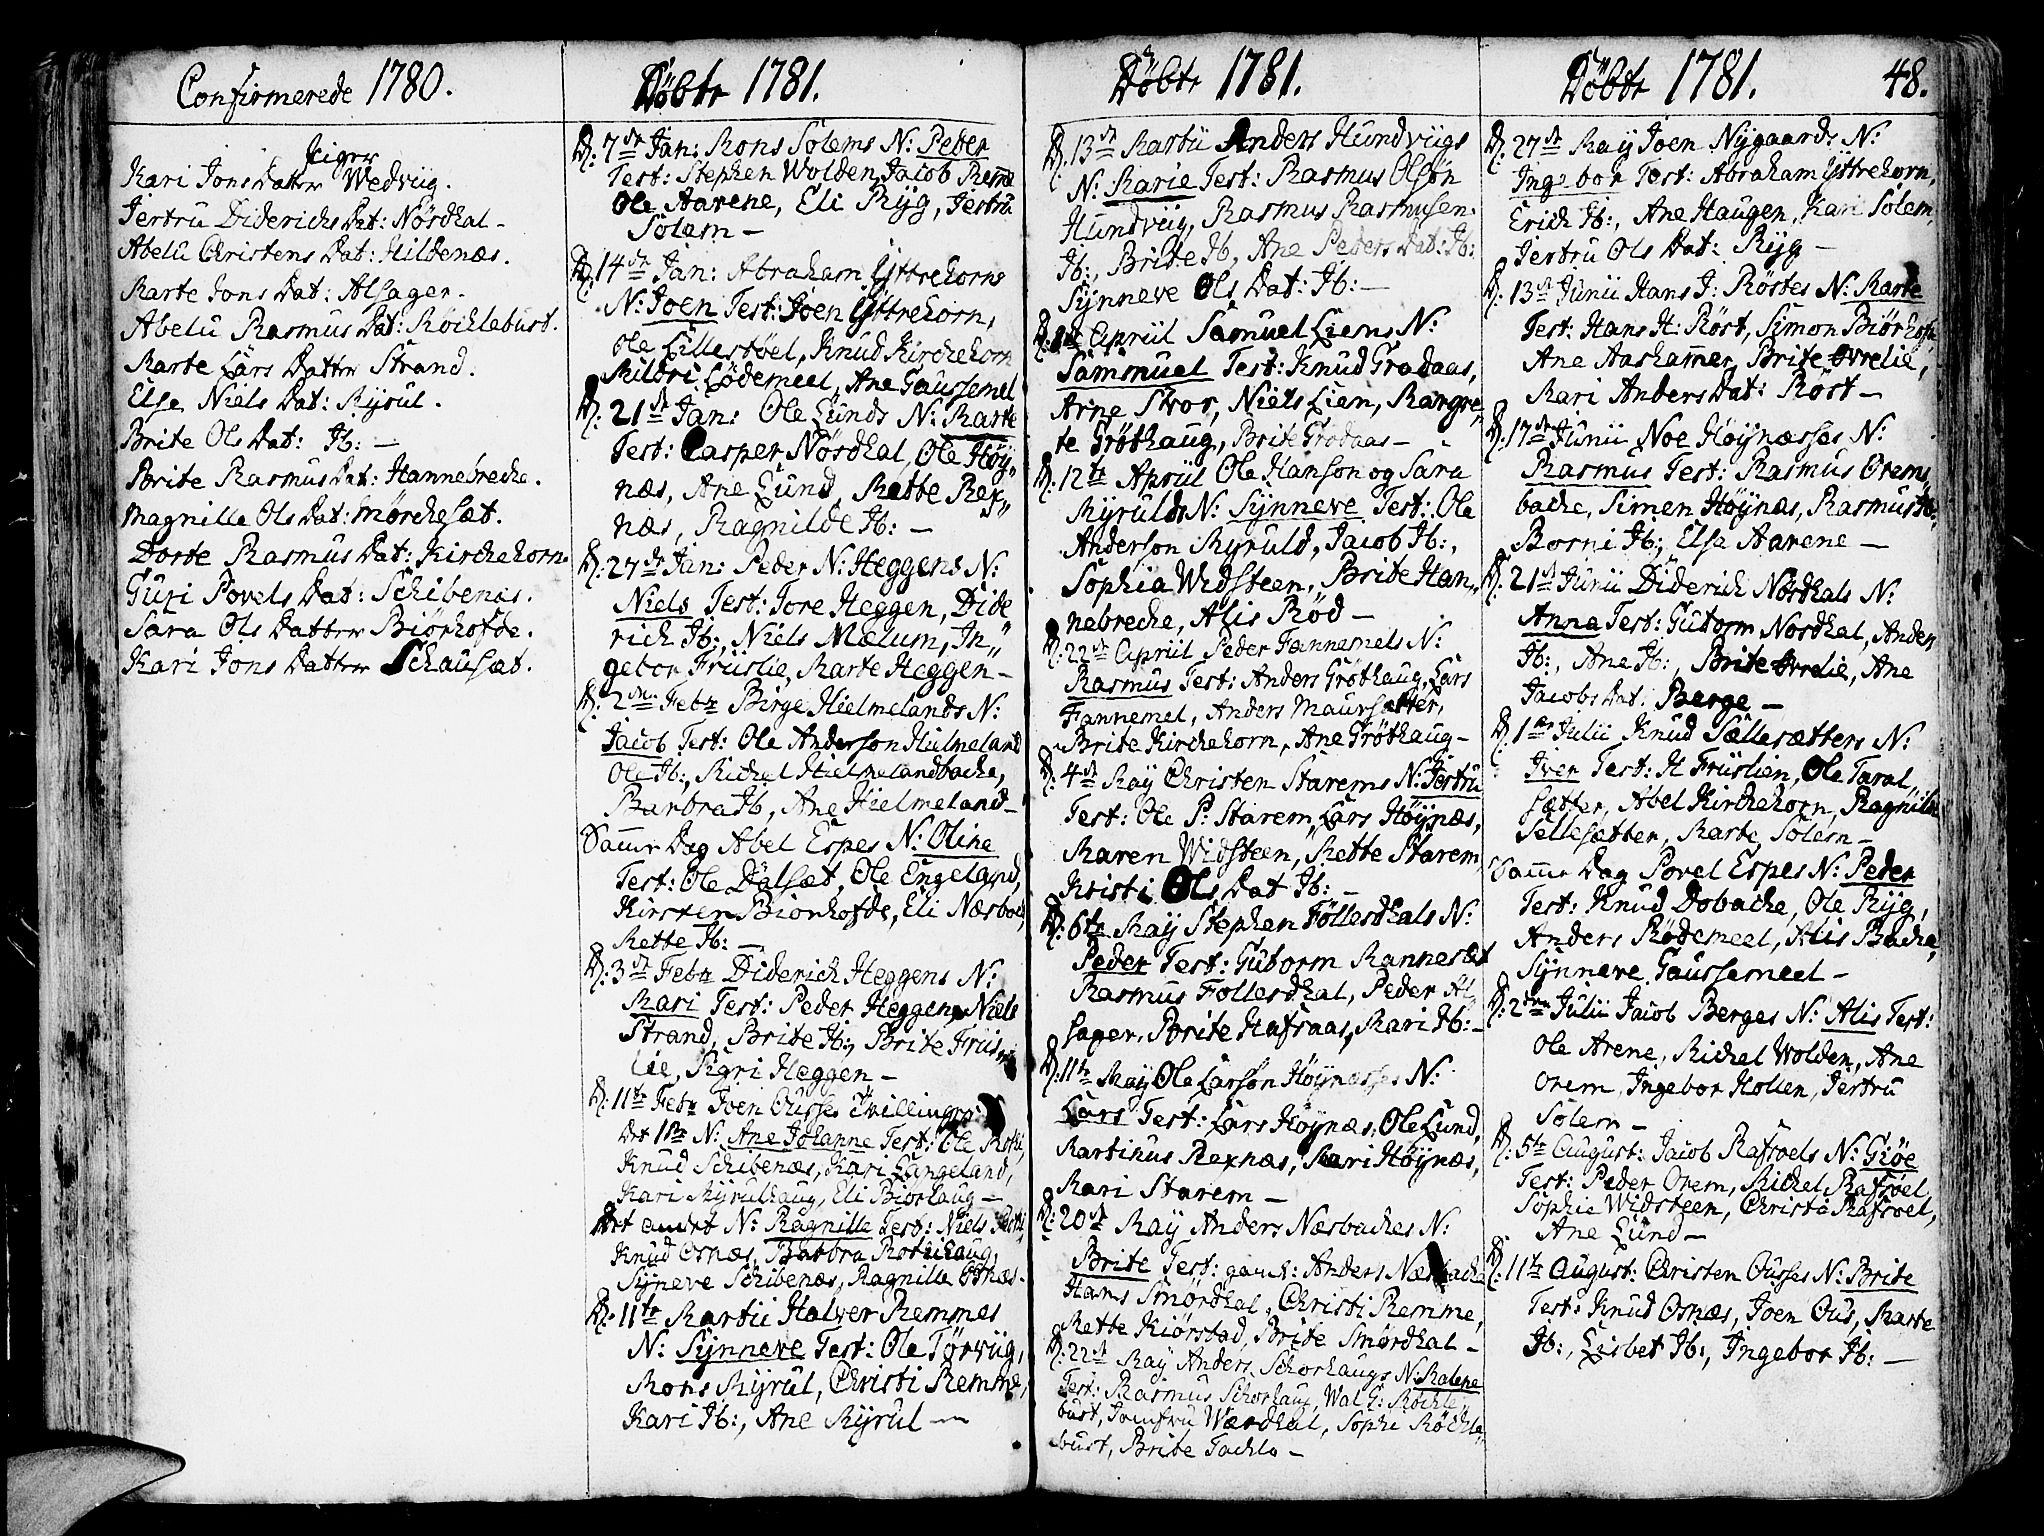 Confirmerede 1780.
Piger
Kari Jons Datter Wedviig.
Jertru Diderichs Dat: Nørdhal -
Abelu Christens Dat: Hildenæs.
Marte Jons Dat: Alsager.
Abelu Rasmus Dat: Røchlebust.
Marte Lars Datter Strand.
Else Niels Dat: Myrul.
Brite Ols Dat: Ib: -
Brite Rasmus Dat: Hannebreche.
Magnille Ols Dat: Mørchesæt.
Dorte Rasmus Dat: Kirchehorn.
Guri Povels Dat: Schibenæs.
Sara Ols Datter Biørhofde.
Kari Jons Datter Schausæt.
Döbte 1781.
D: 7de Jan: Mons Solems N: Peder
Test: Stephen Wolden, Jacob Remme
Ole Aarene, Eli Ryg, Jertru
Solem -
D: 14de Jan: Abraham Yttrehorns
N: Joen Test: Joen Yttrehorn,
Ole Lillestøel, Knud Kirchehorn
Mildri Lødemeel, Ane Gaussemel
D: 21de Jan: Ole Lunds N: Marte
Test: Casper Nørdhal, Ole Høy„
næs, Ane Lund, Mette Rex„
næs, Ragnilde Ib: -
D: 27de Jan: Peder N: Heggens N:
Niels Test: Tore Heggen, Dide
rich Ib:, Niels Mælum, In„
gebor Fruslie, Marte Heggen -
D: 2den Febr Birge Hielmelands N:
Jacob Test: Ole Anderson Hielmeland
Ole Ib:, Michel Hielmelandbache,
Barbra Ib, Ane Hielmeland -
Samme Dag Abel Espes N: Oline
Test: Ole Dalsæt, Ole Engeland,
Kirsten Biørhofde, Eli Næsboe,
Mette Ib: -
D: 3de Febr Diderich Heggens N:
Mari Test: Peder Heggen, Niels
Strand, Brite Ib:, Brite Frus„
lie, Sigri Heggen -
D: 11te Febr Joen Ousses Tvillinger
Det 1ste N: Ane Johanne Test: Ole
Knud Schibenæs, Kari Langeland,
Kari Myrulhaug, Eli Biørhaug -
Det andet N: Ragnille Test: Niels
Knud Osnæs, Barbra Rothihaug,
Synneve Schibenæs, Ragnille Osnæs -
D: 11te Martii Halver Remmes
N: Synneve Test: Ole Tørviig,
Mons Myrul, Christi Remme,
Kari Ib:, Ane Myrul -
Döbte 1781.
D: 13de Martii Anders Hundviigs
N: Marie Test: Rasmus Olsøn
Hundveig, Rasmus Rasmusen
Ib:, Brite Ib, Ane Peders Dat: Ib:
Synneve Ols Dat: Ib: -
D: 1ste Apriil Samuel Liens N:
Sammuel Test: Knud Grodaas,
Arne Stror, Niels Lien, Margre„
te Grøthaug, Brite Grodaas -
D: 12te Apriil Ole Hanson og Sara
Myrulds N: Synneve Test: Ole
Anderson Myruld, Jacob Ib:,
Sophia Widsteen, Brite Han„
nebreche, Alis Rød -
D: 22de Apriil Peder Fannemels N:
Rasmus Test: Anders Grøthaug, Lars
Fannemel, Anders Maursætter,
Brite Kirchehorn, Ane Grøthaug -
D: 4de May Christen Starems N: Jertru
Test: Ole P: Starem, Lars Høynæs,
Maren Widsteen, Mette Starem
Kristi Ols Dat Ib: -
D: 6te May Stephen Föllesdhals N:
Peder Test: Gutorm Mannesæt
Rasmus Follesdhal, Peder Al„
sager, Brite Hafraas, Mari Ib: -
D: 11te May Ole Larsøn Høynæsses N:
Lars Test: Lars Høynæs, Ole Lund,
Martinus Rexnæs, Mari Høynæs,
Mari Starem -
D: 20de May Anders Næsbaches N:
Brite Test: Anders Næsbache
Hans Smørdhal, Christi Remme,
Mette Kiørstad, Brite Smørdhal -
D: 22de May Anders Schorhaugs N: Malene
Test: Rasmus Schorhaug, Wal G: Røchle„
bust, Jomfru Wærdhal, Sophi Røchle„
bust, Brite Tachlo -
Döbte 1781. 48.
D: 27de May Joen Nygaards N:
Ingebor Test: Abraham Yttrehorn,
Erich Ib:, Ane Haugen, Kari Solem,
Jertru Ols Dat: Ryg -
D: 13de Junii Hans J: Røstes N: Marte
Test: Hans H: Røst, Simon Biørhofde,
Ane Aashammer, Brite Ovrelie,
Kari Anders Dat: Røst -
D: 17de Junii Noe Høynæsses N:
Rasmus Test: Rasmus Orems„
bache, Simen Høynæs, Rasmus Ib:,
Borni Ib:, Else Aarene -
D: 21de Junii Diderich Nørdhals N:
Anna Test: Gutorm Nordhal, Anders
Ib:, Ane Ib:, Brite Ovrelie, Ane
Jacobs Dat: Berge -
D: 1ste Julii Knud Sællesætters N:
Iver Test: H Fruslien, Ole Taral
sætter, Abel Kirchehorn, Ragnilde
Sellesetter, Marte Solem -
Samme Dag Povel Espes N: Peder
Test: Knud Dobache, Ole Ryg,
Anders Rødemeel, Alis Bache,
Synneve Gaussemeel -
D: 2den Julii Jacob Berges N: Alis Test:
Ole Arene, Michel Wolden, Ane
Orem, Ingebor Hollen, Jertru
Solem -
D: 5te August: Jacob Rafsvels N: Giøe
Test: Peder Orem, Michel Rafsvel
Sophie Widsteen, Christi Rafsvel,
Ane Lund -
D: 11te August: Christen Ousses N: Brite
Test: Knud Osnæs, Joen Ous, Marte
Ib:, Lisbet Ib:, Ingebor Ib: -